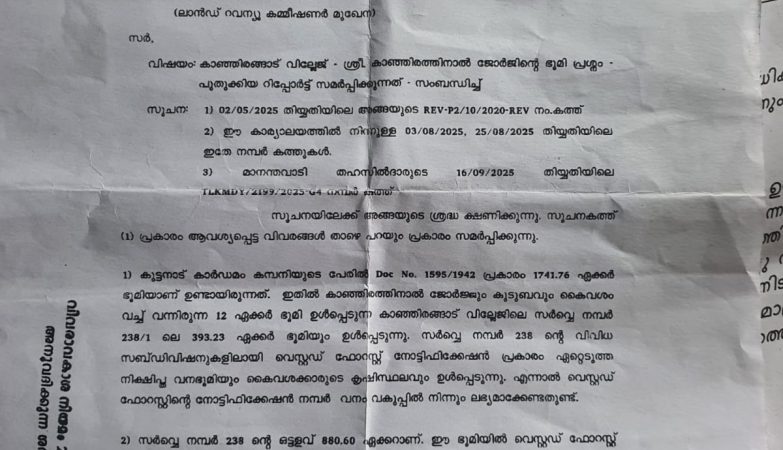 (ലാൻഡ് റവന്യൂ കമ്മീഷണർ മുഖേന)
സർ,
വിഷയം: കാഞ്ഞിരങ്ങാട് വില്ലേജ് - ശ്രീ. കാഞ്ഞിരത്തിനാൽ ജോർജിന്റെ ഭൂമി പ്രശ്നം -
പുതുക്കിയ റിപ്പോർട്ട് സമർപ്പിക്കുന്നത് - സംബന്ധിച്ച്
സൂചന: 1) 02/05/2025 തിയ്യതിയിലെ അങ്ങയുടെ REV-P2/10/2020-REV നം.കത്ത്
2) ഈ കാര്യാലയത്തിൽ നിന്നുള്ള 03/08/2025, 25/08/2025 തിയ്യതിയിലെ
ഇതേ നമ്പർ കത്തുകൾ.
3) മാനന്തവാടി തഹസിൽദാരുടെ 16/09/2025 തിയ്യതിയിലെ
TLKMDY/2199/2025-G4 നമ്പർ കത്ത്
സൂചനയിലേക്ക് അങ്ങയുടെ ശ്രദ്ധ ക്ഷണിക്കുന്നു. സൂചനകത്ത്
(1) പ്രകാരം ആവശ്യപ്പെട്ട വിവരങ്ങൾ താഴെ പറയും പ്രകാരം സമർപ്പിക്കുന്നു.
1) കുട്ടനാട് കാർഡമം കമ്പനിയുടെ പേരിൽ Doc No. 1595/1942 പ്രകാരം 1741.76 ഏക്കർ
ഭൂമിയാണ് ഉണ്ടായിരുന്നത്. ഇതിൽ കാഞ്ഞിരത്തിനാൽ ജോർജ്ജും കുടുബവും കൈവശം
വച്ച് വന്നിരുന്ന 12 ഏക്കർ ഭൂമി ഉൾപ്പെടുന്ന കാഞ്ഞിരങ്ങാട് വില്ലേജിലെ സർവ്വെ നമ്പർ
238/1 ലെ 393.23 ഏക്കർ ഭൂമിയും ഉൾപ്പെടുന്നു. സർവ്വെ നമ്പർ 238 ന്റെ വിവിധ
സബ്ഡിവിഷനുകളിലായി വെസ്റ്റഡ് ഫോറസ്റ്റ് നോട്ടിഫിക്കേഷൻ പ്രകാരം ഏറ്റെടുത്ത
നിക്ഷിപ്ത വനഭൂമിയും കൈവശക്കാരുടെ കൃഷിസ്ഥലവും ഉൾപ്പെടുന്നു. എന്നാൽ വെസ്റ്റഡ്
ഫോറസ്റ്റിന്റെ നോട്ടിഫിക്കേഷൻ നമ്പർ വനം വകുപ്പിൽ നിന്നും ലഭ്യമാക്കേണ്ടതുണ്ട്.
2) സർവ്വെ നമ്പർ 238 ന്റെ ഒട്ടളവ് 880.60 ഏക്കറാണ്. ഈ ഭൂമിയിൽ വെസ്റ്റഡ് ഫോറസ്റ്റ്
വിവരാവകാശ നിയമം
അനുവദിക്കുന്ന